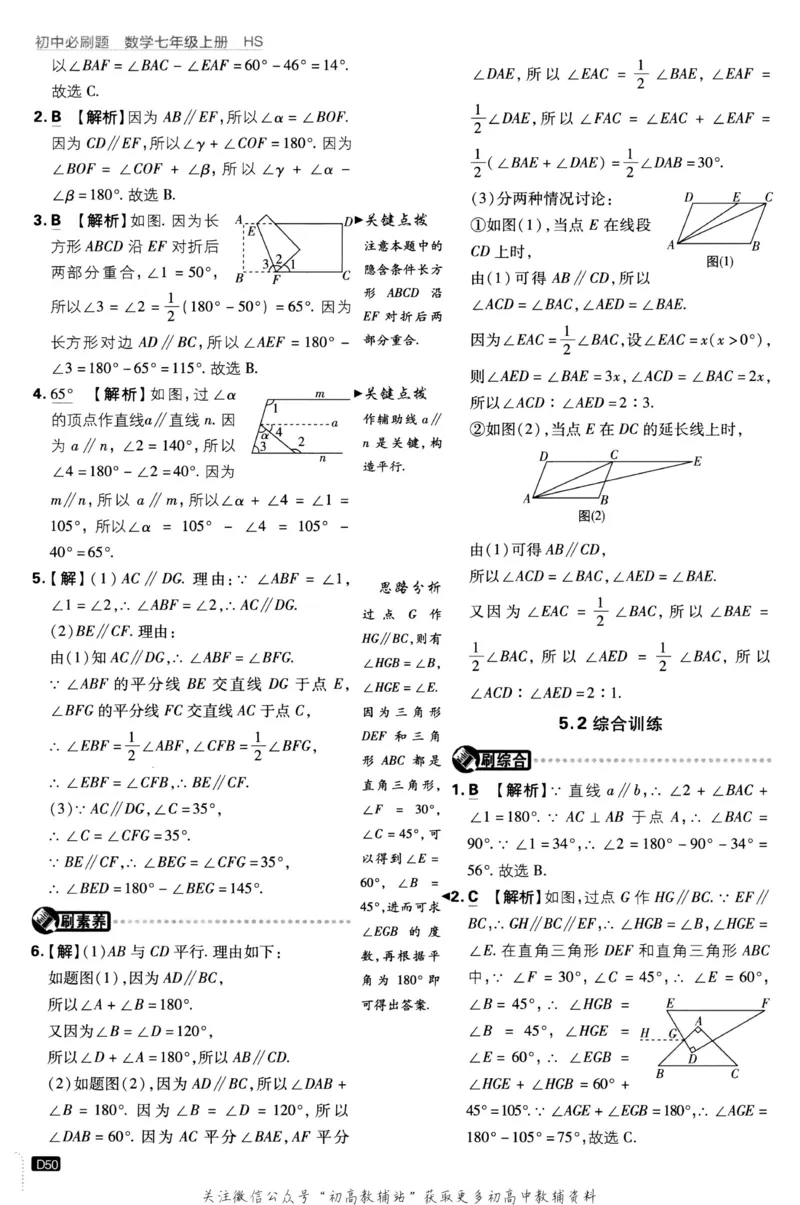 初中必刷题 数学七年级上册 HS
以∠BAF=∠BAC-∠EAF=60°-46°=14°.
故选 C.
2. B 【解析】因为 AB∥EF,所以∠α=∠BOF.
因为 CD∥EF,所以∠γ+∠COF=180°. 因为
∠BOF = ∠COF + ∠β, 所以 ∠γ + ∠α -
∠β=180°. 故选 B.
3. B 【解析】如图. 因为长
方形 ABCD 沿 EF 对折后
两部分重合, ∠1 = 50°,
所以∠3 = ∠2 = 1/2(180°-50°)=65°. 因为
长方形对边 AD∥BC,所以∠AEF=180°-
∠3=180°-65°=115°. 故选 B.
A E D
3 2 1
B F C
▶关键点拨
注意本题中的
隐含条件长方
形 ABCD 沿
EF 对折后两
部分重合.
4. 65° 【解析】如图,过∠α
的顶点作直线a∥直线 n. 因
为 a∥n, ∠2=140°,所以
∠4=180°-∠2=40°. 因为
m∥n,所以 a∥m,所以∠α + ∠4 = ∠1 =
105°, 所以∠α = 105° - ∠4 = 105° -
40°=65°.
m
1
a
α 4
3 2
n
▶关键点拨
作辅助线 a∥
n 是关键,构
造平行.
5. 【解】(1) AC∥DG. 理由:∵ ∠ABF = ∠1,
∠1=∠2,∴ ∠ABF=∠2,∴ AC∥DG.
(2)BE∥CF. 理由:
由(1)知 AC∥DG,∴ ∠ABF=∠BFG.
∵ ∠ABF 的平分线 BE 交直线 DG 于点 E,
∠BFG 的平分线 FC 交直线 AC 于点 C,
∴ ∠EBF=1/2∠ABF,∠CFB=1/2∠BFG,
∴ ∠EBF=∠CFB,∴ BE∥CF.
(3)∵ AC∥DG,∠C=35°,
∴ ∠C=∠CFG=35°.
∵ BE∥CF,∴ ∠BEG=∠CFG=35°,
∴ ∠BED=180°-∠BEG=145°.
刷素养
6. 【解】(1)AB 与 CD 平行. 理由如下:
如题图(1),因为 AD∥BC,
所以∠A+∠B=180°.
又因为∠B=∠D=120°,
所以∠D+∠A=180°,所以 AB∥CD.
(2)如题图(2),因为 AD∥BC,所以∠DAB+
∠B = 180°. 因为 ∠B = ∠D = 120°, 所以
∠DAB=60°. 因为 AC 平分∠BAE,AF 平分
思路分析
过点 G 作
HG∥BC,则有
∠HGB=∠B,
∠HGE=∠E.
因为三角形
DEF 和三角
形 ABC 都是
直角三角形,
∠F = 30°,
∠C=45°,可
以得到∠E=
60°, ∠B =
45°,进而可求
∠EGB 的度
数,再根据平
角为 180°即
可得出答案.
∠DAE, 所以 ∠EAC = 1/2 ∠BAE, ∠EAF =
1/2∠DAE, 所以 ∠FAC = ∠EAC + ∠EAF =
1/2(∠BAE+∠DAE)=1/2∠DAB=30°.
(3)分两种情况讨论:
①如图(1),当点 E 在线段
CD 上时,
由(1)可得 AB∥CD,所以
∠ACD=∠BAC,∠AED=∠BAE.
D E C
A B
图(1)
因为∠EAC=1/2∠BAC,设∠EAC=x(x>0°),
则∠AED=∠BAE=3x,∠ACD=∠BAC=2x,
所以∠ACD∶∠AED=2∶3.
②如图(2),当点 E 在 DC 的延长线上时,
D C E
A B
图(2)
由(1)可得 AB∥CD,
所以∠ACD=∠BAC,∠AED=∠BAE.
又因为 ∠EAC = 1/2 ∠BAC, 所以 ∠BAE =
1/2∠BAC, 所以 ∠AED = 1/2 ∠BAC, 所以
∠ACD∶∠AED=2∶1.
5.2 综合训练
刷综合
1. B 【解析】∵ 直线 a∥b,∴ ∠2 + ∠BAC +
∠1=180°. ∵ AC⊥AB 于点 A,∴ ∠BAC =
90°. ∵ ∠1=34°,∴ ∠2=180°-90°-34°=
56°. 故选 B.
◀2. C 【解析】如图,过点 G 作 HG∥BC. ∵ EF∥
BC,∴ GH∥BC∥EF,∴ ∠HGB=∠B,∠HGE=
∠E. 在直角三角形 DEF 和直角三角形 ABC
中,∵ ∠F = 30°, ∠C = 45°,∴ ∠E = 60°,
∠B = 45°, ∴ ∠HGB =
∠B = 45°, ∠HGE =
∠E = 60°, ∴ ∠EGB =
∠HGE + ∠HGB = 60° +
45°=105°. ∵ ∠AGE+∠EGB=180°,∴ ∠AGE=
180°-105°=75°,故选 C.
E F
A
H G
D
B C
D50
关注微信公众号“初高教辅站”获取更多初高中教辅资料